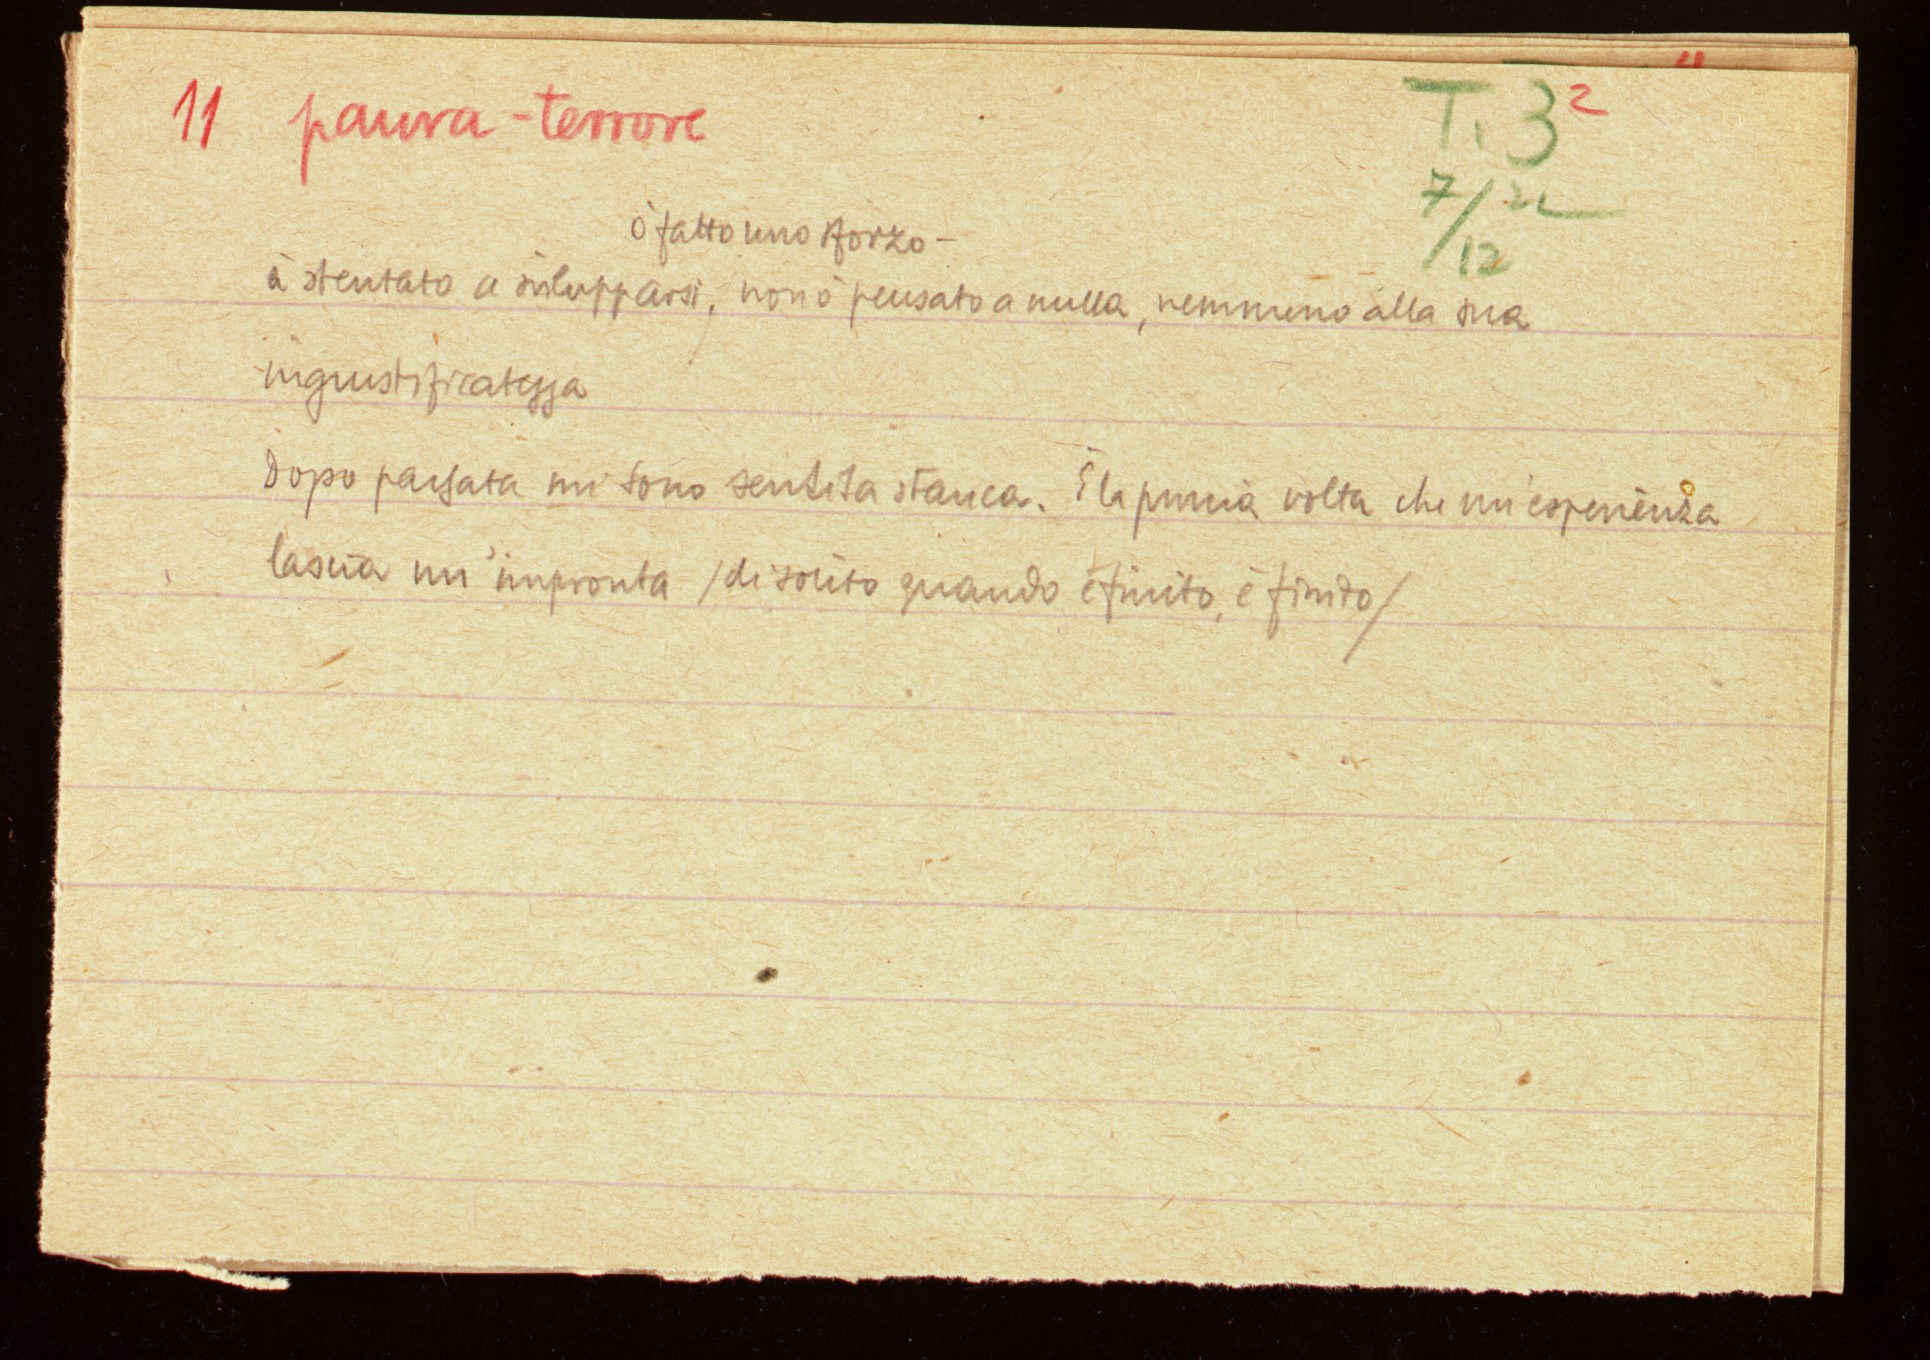 11 paura - terrore
T. 3²
7/12
ò fatto uno sforzo -
à stentato a svilupparsi, non ò pensato a nulla, nemmeno alla sua
ingiustificatezza
Dopo passata mi sono sentita stanca. È la prima volta che un'esperienza
lascia un'impronta /di solito quando è finito, è finito/